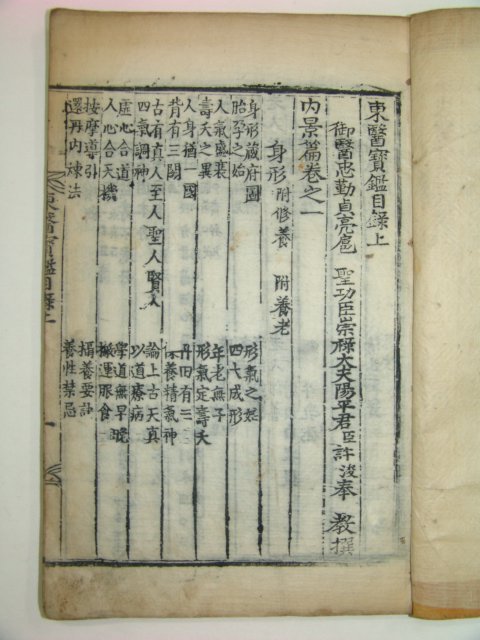 東醫寶鑑目錄上
御醫忠勤貞亮扈 聖功臣崇祿大夫陽平君臣許浚奉 敎撰
內景篇卷之一
身形 附修養 附養老
身形藏府圖 形氣之始
胎孕之始 四大成形
人氣盛衰 年老無子
壽夭之異 形氣定壽夭
人身猶一國 丹田有三
背有三關 保養精氣神
古有眞人至人聖人賢人 論上古天眞
四氣調神 以道療病
虛心合道 學道無早晩
人心合天機 搬運服食
按摩導引 攝養要訣
還丹內煉法 養性禁忌
東醫寶鑑目錄上 一